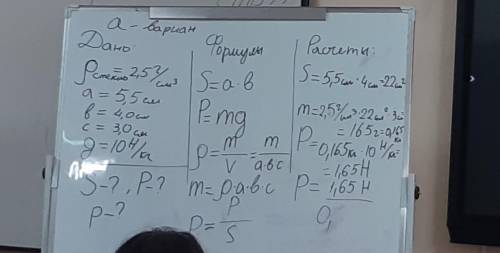 а - вариан
Дано:
ρстекло = 2,5 г/см³
а = 5,5 см
в = 4,0 см
с = 3,0 см
g = 10 Н/кг
S - ? , P - ?
p - ?
Формулы
S = a·b
P = mg
ρ = m/V = m/abc
m = ρ·a·b·c
p = P/S
Расчеты:
S = 5,5 см · 4 см = 22 см²
m = 2,5 г/см³ · 22 см² · 3 см
= 165 г = 0,165 кг
P = 0,165 кг · 10 Н/кг =
= 1,65 Н
P = 1,65 Н
0,